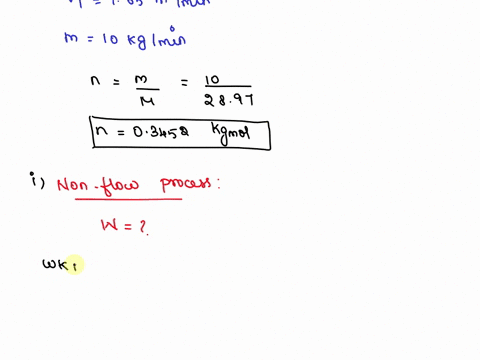 m = 10 kg/min
n = m/M = 10/28.97
n = 0.3452 kgmol
i) Non-flow process:
W = ?
WK